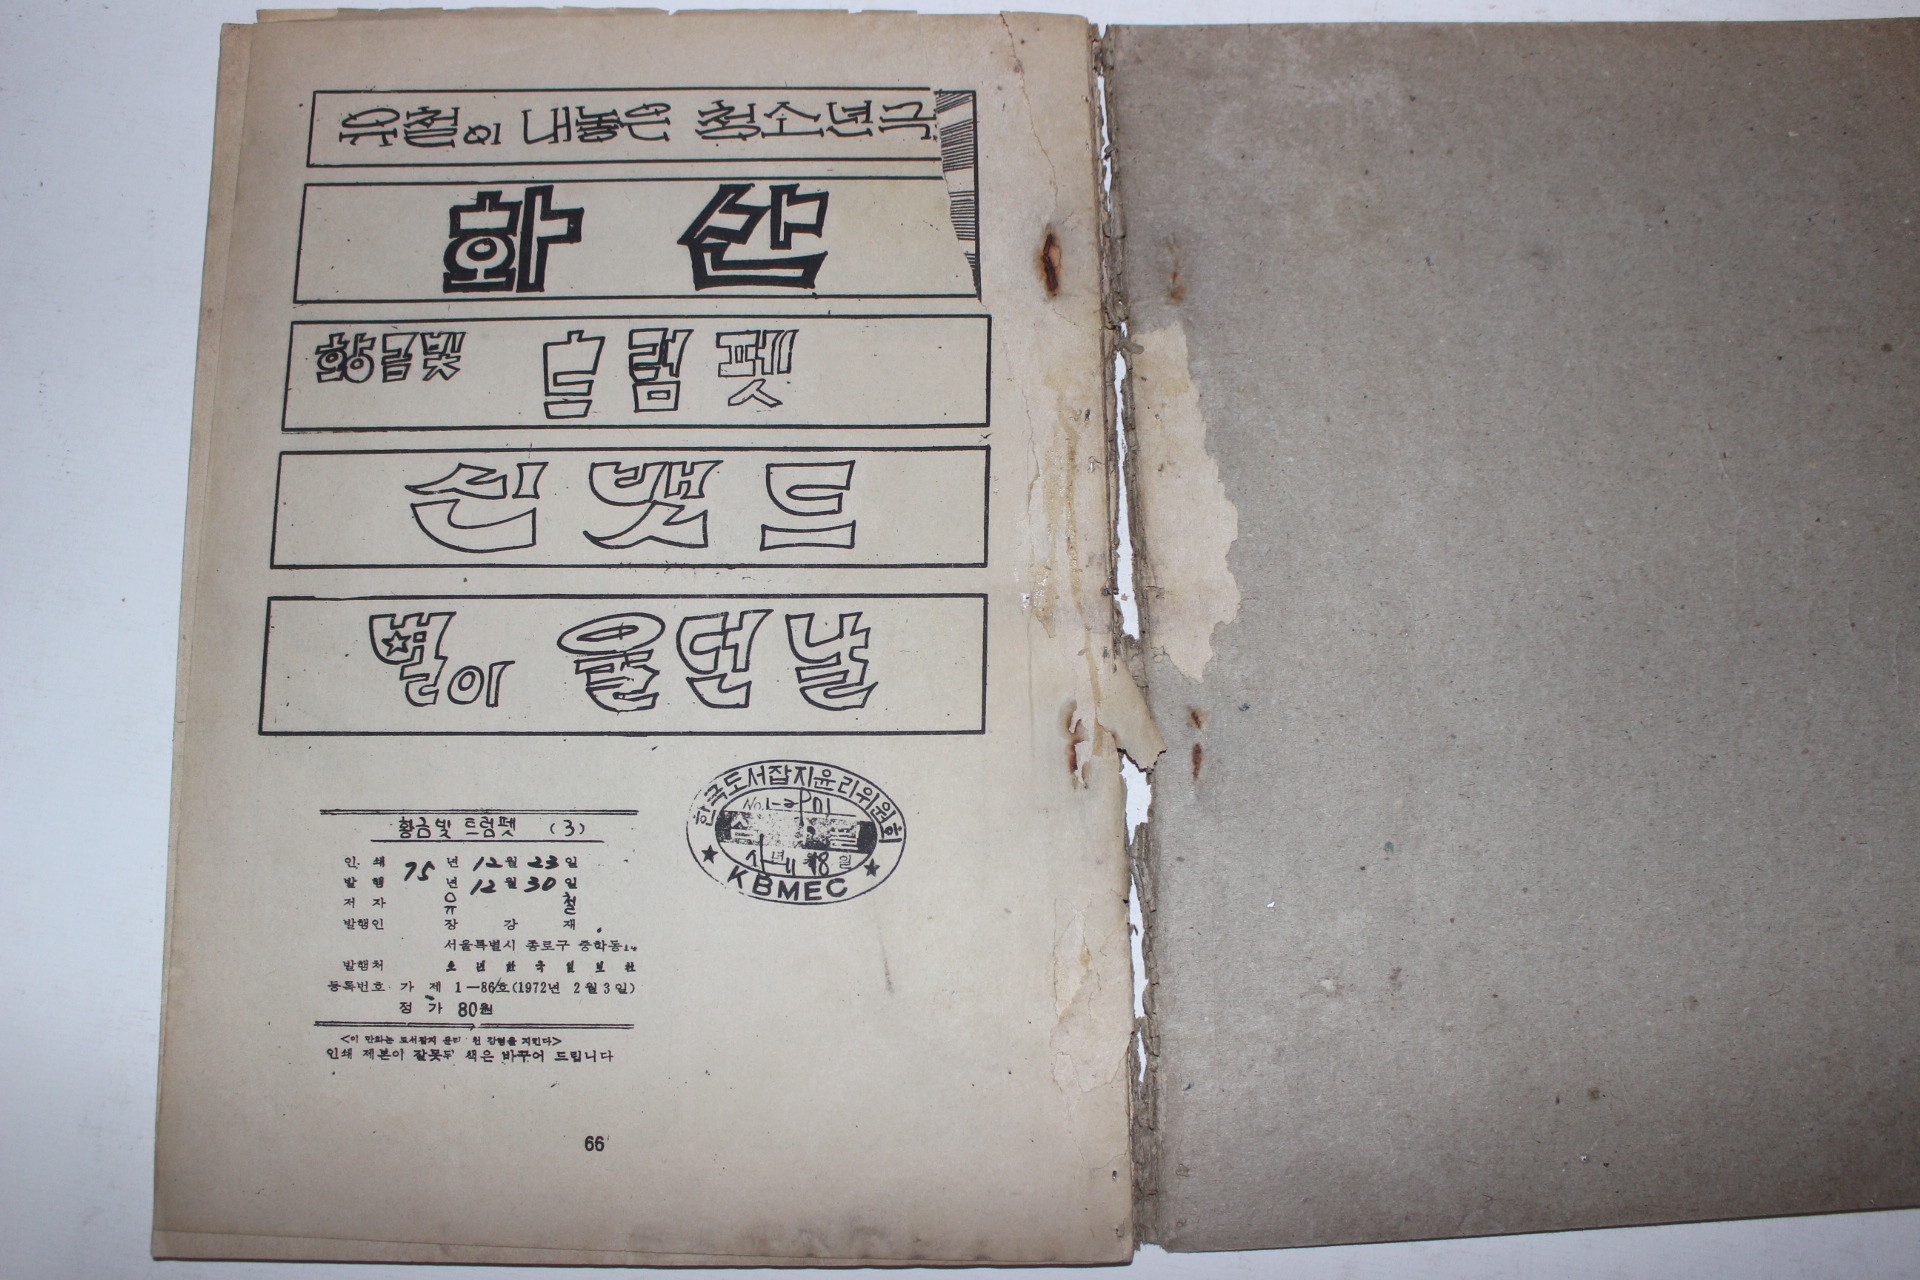 유철이 내놓은 청소년극
화산
황금빛 트럼펫
신밷드
별이 울던 날
황금빛 트럼펫 (3)
인쇄 75년 12월 23일
발행 년 12월 30일
저자 유철
발행인 장강재
서울특별시 종로구 중학동14
발행처 소년한국일보사
등록번호 가 제 1—86호(1972년 2월 3일)
정가 80원
<이 만화는 도서잡지 윤리 강령을 지킨다>
인쇄 제본이 잘못된 책은 바꾸어 드립니다
한국도서잡지윤리위원회
No.1-
년 18일
KBMEC
66